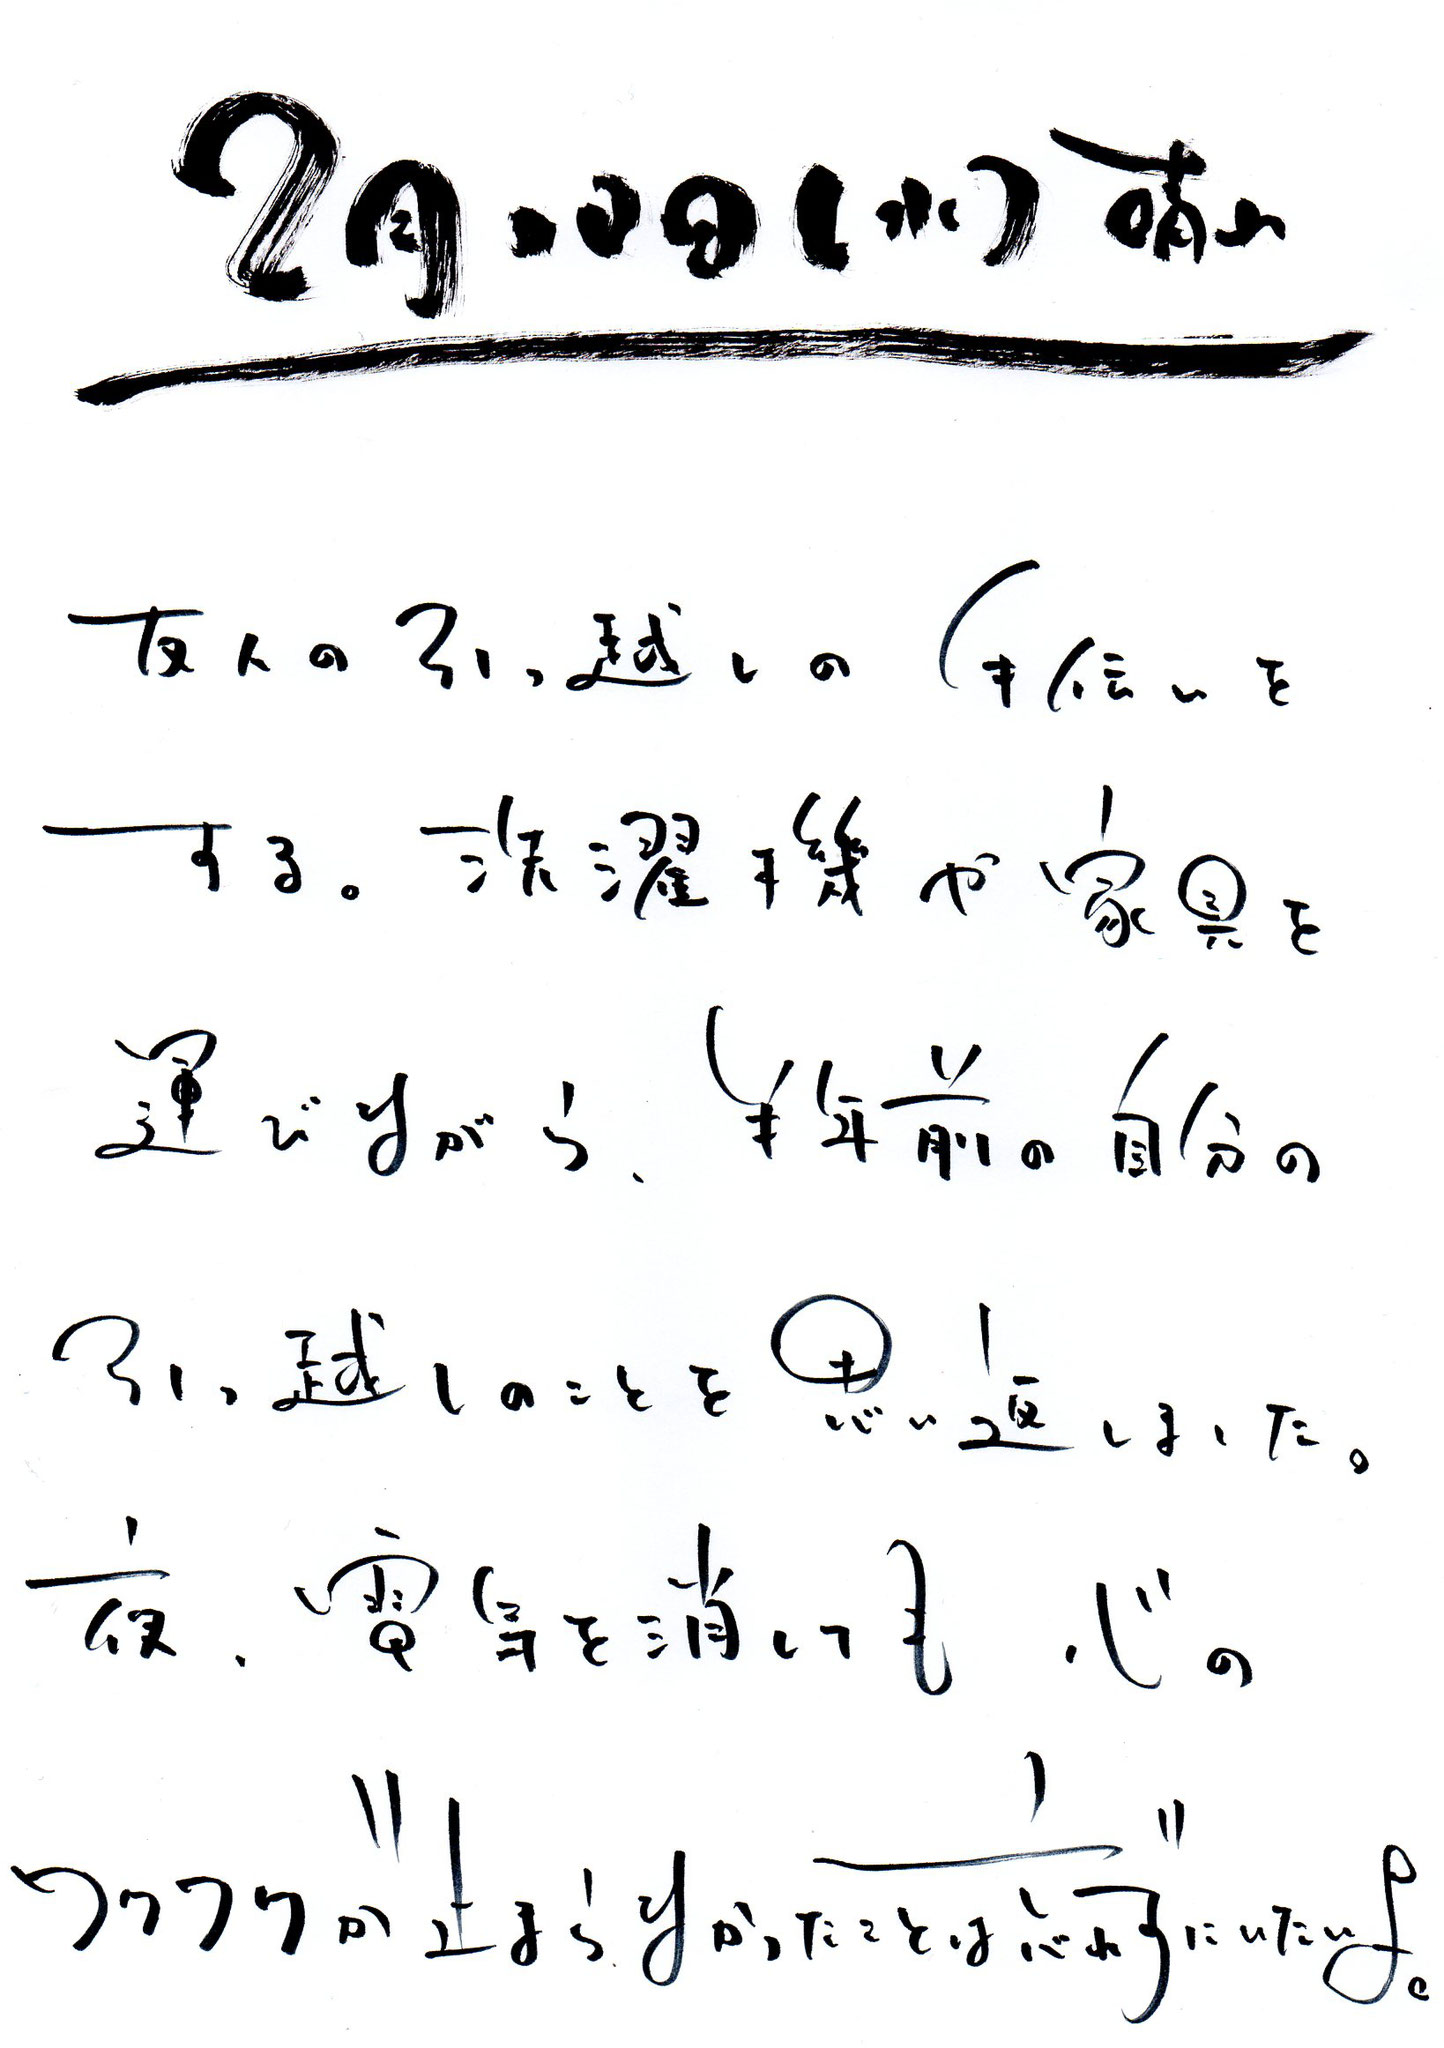 2月10日(水)晴れ
友人の引っ越しの手伝いを
する。洗濯機や家具を
運びながら、半年前の自分の
引っ越しのことを思い返しました。
夜、電気を消しても心の
ワクワクが止まらなかったことは忘れずにいたいよ。